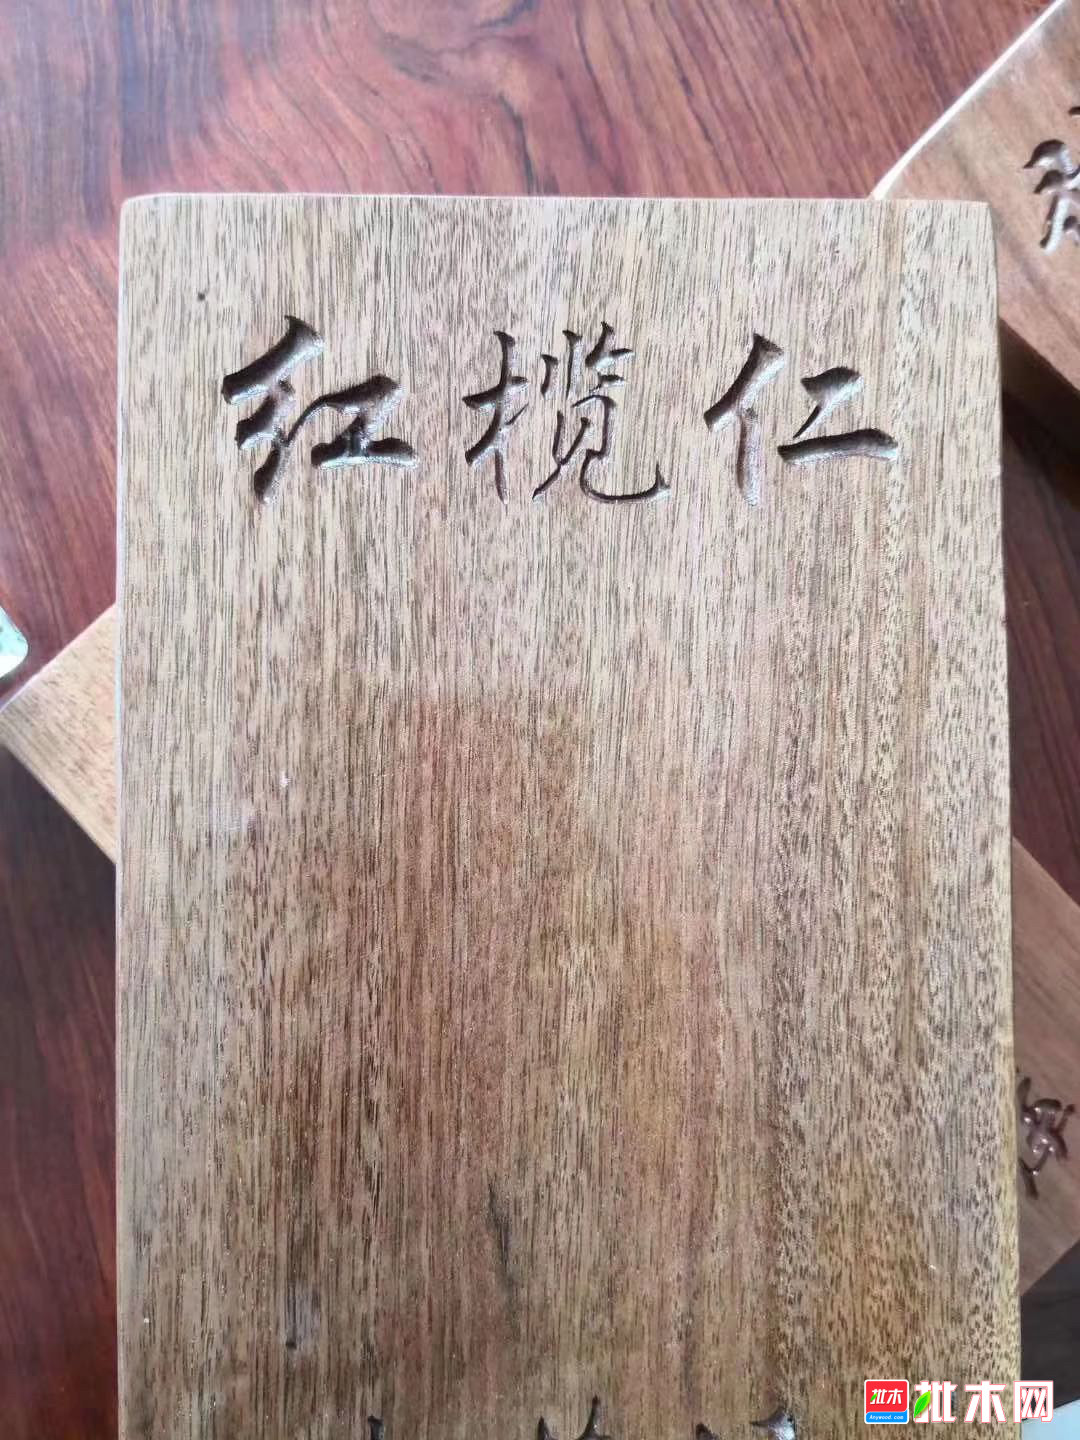 红榄仁
批木
Anywood.com
批木网